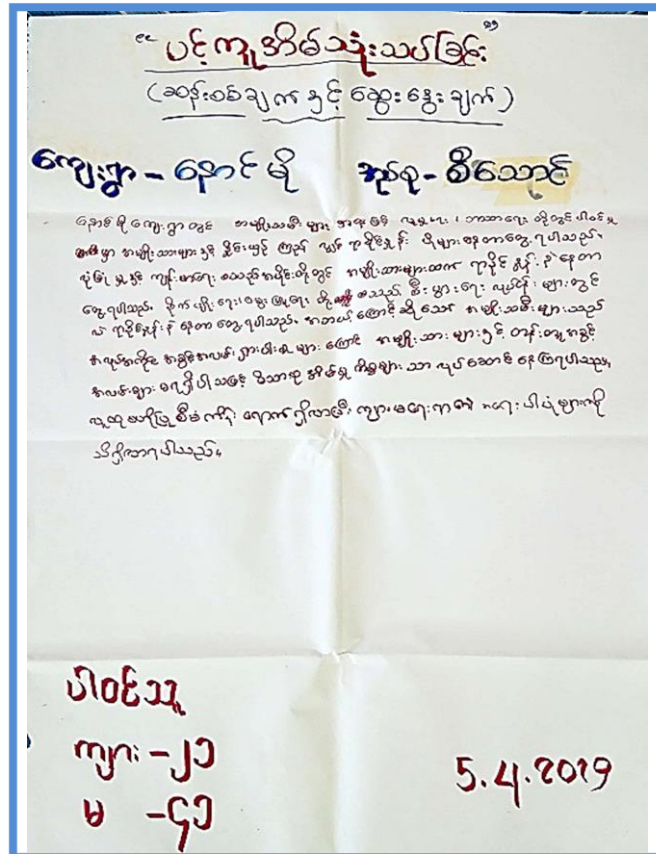 " ပင့်ကူအိမ်သုံးသပ်ခြင်း "
(ဆန်းစစ်ချက်နှင့် ဆွေးနွေးချက်)
ကျေးရွာ - နောင်မို အုပ်စု - စီသောင်
နောင်မိုကျေးရွာတွင် အမျိုးသမီးများ အနေဖြင့် လူမှုရေး၊ ဘာသာရေး တို့တွင် ပါဝင်မှု
မှာ အမျိုးသားများနှင့် နှိုင်းယှဉ် ကြည့် လျှင် ရာခိုင်နှုန်း ပိုများနေတာတွေ့ရပါသည်။
လုံခြုံမှုနှင့် ကျန်းမာရေး စသည့်အပိုင်းတို့တွင် အမျိုးသားများထက် ရာခိုင်နှုန်း နဲနေတာ
တွေ့ရပါသည်။ စိုက်ပျိုးရေး၊ မွေးမြူရေး တို့ စသည့် စီးပွားရေး လုပ်ငန်းများတွင်
လဲ ရာခိုင်နှုန်းနဲနေတာ တွေ့ရပါသည်။ အဘယ်ကြောင့်ဆိုသော် အမျိုးသမီးများသည်
အလုပ်အကိုင် အခွင့်အလမ်း ရှားပါးမှုများကြောင့် အမျိုးသားများနှင့် တန်းတူအခွင့်
အလမ်းများ မရရှိပါသဖြင့် မိသားစု အိမ်မှု ကိစ္စများသာ လုပ်ဆောင်နေကြရပါသည်။
လူထုဗဟိုပြုစီမံကိန်း ရောက်ရှိလာပြီး ကျား၊မရေးရာ၏ အရေးပါပုံများကို
သိရှိလာရပါသည်။
ပါဝင်သူ
ကျား - ၂၁
မ - ၄၁
5.4.2019